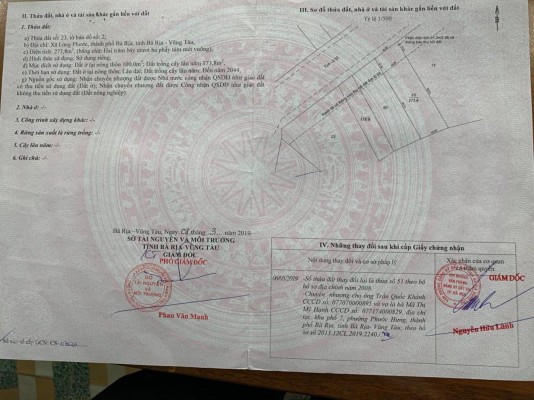 II. Thửa đất, nhà ở và tài sản khác gắn liền với đất
1. Thửa đất:
a) Thửa đất số: 23, tờ bản đồ số: 2;
b) Địa chỉ: Xã Long Phước, thành phố Bà Rịa, tỉnh Bà Rịa - Vũng Tàu,
c) Diện tích: 277,8m², (bằng chữ: Hai trăm bảy mươi bảy phẩy tám mét vuông),
d) Hình thức sử dụng: Sử dụng riêng;
đ) Mục đích sử dụng: Đất ở tại nông thôn 100,0m²; Đất trồng cây lâu năm 177,8m²
e) Thời hạn sử dụng: Đất ở tại nông thôn: Lâu dài; Đất trồng cây lâu năm: Đến năm 2044,
g) Nguồn gốc sử dụng: Nhận chuyển nhượng đất được Nhà nước công nhận QSDĐ như giao đất
có thu tiền sử dụng đất (Đất ở); Nhận chuyển nhượng đất được Công nhận QSDĐ như giao đất
không thu tiền sử dụng đất (Đất nông nghiệp).
2. Nhà ở: -/-
3. Công trình xây dựng khác: -/-
4. Rừng sản xuất là rừng trồng: -/-
5. Cây lâu năm: -/-
6. Ghi chú: -/-
Bà Rịa - Vũng Tàu, Ngày tháng 3 năm 2019
SỞ TÀI NGUYÊN VÀ MÔI TRƯỜNG
TỈNH BÀ RỊA-VŨNG TÀU
KT GIÁM ĐỐC
PHÓ GIÁM ĐỐC
SỞ
TÀI NGUYÊN
VÀ
MÔI TRƯỜNG
Phan Văn Mạnh
III. Sơ đồ thửa đất, nhà ở và tài sản khác gắn liền với đất
Tỷ lệ 1/500
IV. Những thay đổi sau khi cấp Giấy chứng nhận
Nội dung thay đổi và cơ sở pháp lý
Xác nhận của cơ quan
có thẩm quyền
-Số thửa đất thay đổi lại là thửa số 51 theo bộ
hồ sơ địa chính năm 2008.
-Chuyển nhượng cho ông Trần Quốc Khánh
CCCD số: 077070000895 và vợ là bà Mã Thị
Mỹ Hạnh CCCD số: 077174000829, địa chỉ
tại: khu phố 7, phường Phước Hưng, thành
phố Bà Rịa, tỉnh Bà Rịa- Vũng Tàu; theo hồ
GIÁM ĐỐC
Nguyễn Hữu Lành